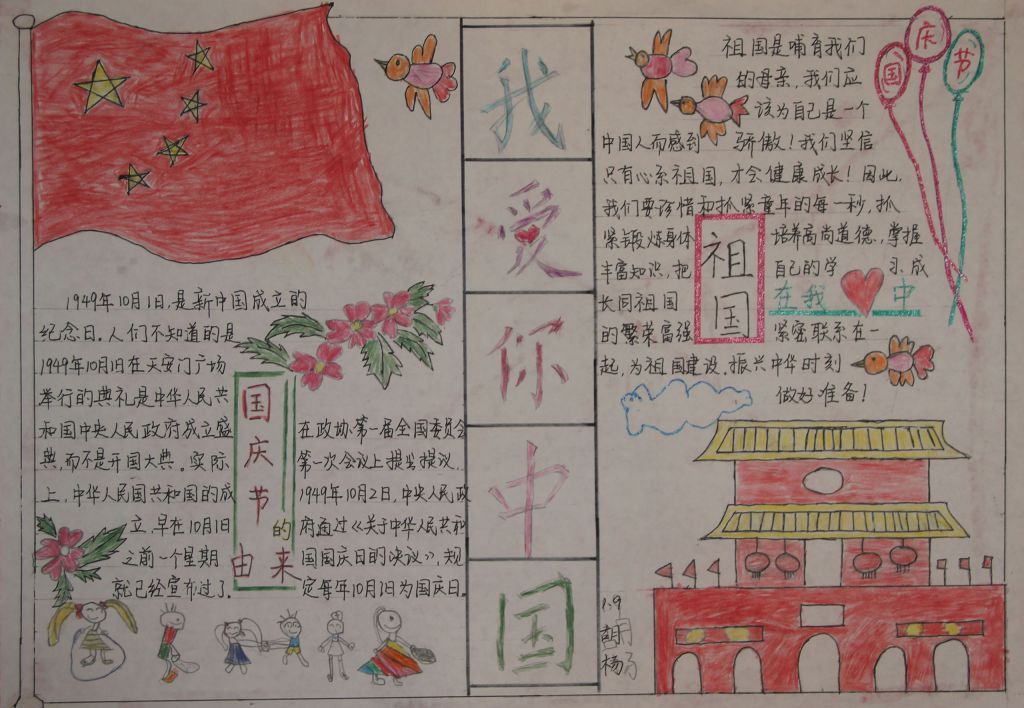 我
爱
你
中
国
1949年10月1日,是新中国成立的
纪念日。人们不知道的是
1949年10月1日在天安门广场
举行的典礼是中华人民共
和国中央人民政府成立盛
典,而不是开国大典。实际
上,中华人民国共和国的成
立,早在10月1日
之前一个星期
就已经宣布过了。
国庆节的由来
在政协第一届全国委员会
第一次会议上提出提议,
1949年10月2日,中央人民政
府通过《关于中华人民共和
国国庆日的决议》,规
定每年10月1日为国庆日。
祖国是哺育我们
的母亲,我们应
该为自己是一个
中国人而感到 骄傲!我们坚信
只有心系祖国,才会健康成长!因此,
我们要珍惜和抓紧童年的每一秒,抓
紧锻炼身体 培养高尚道德,掌握
丰富知识,把 自己的学 习、成
长同祖国
的繁荣富强 紧密联系在一
起,为祖国建设,振兴中华时刻
做好准备!
祖国
在我 中
国庆节
1.9
杨